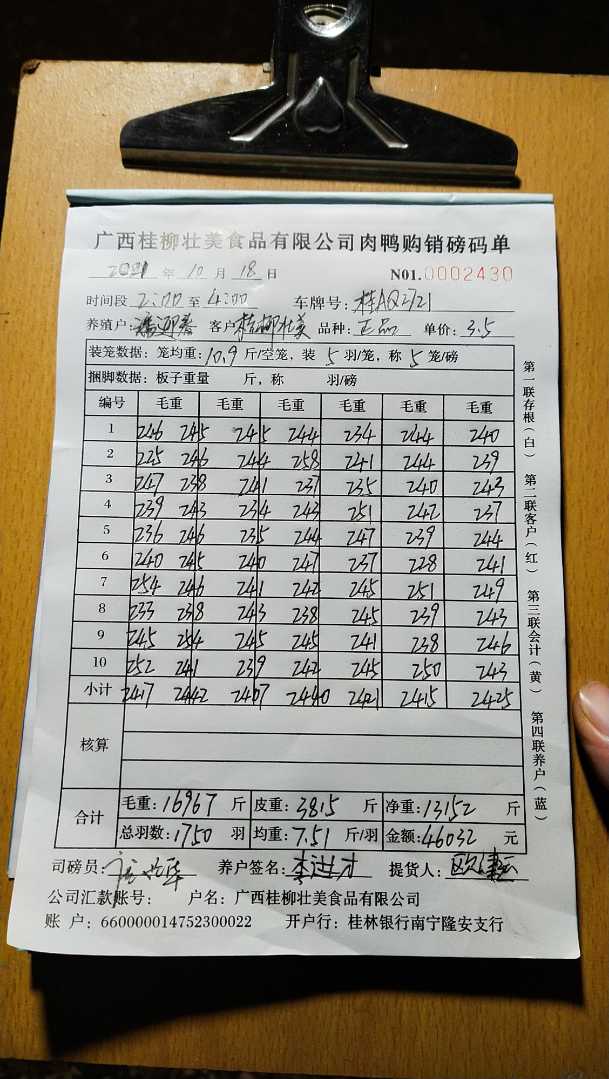 广西桂柳壮美食品有限公司肉鸭购销磅码单
2021 年 10 月 18 日 N01.0002430
时间段 2:00 至 4:00 车牌号: 桂AQ2721
养殖户: 客户 桂柳壮美 品种: 正品 单价: 3.5
装笼数据: 笼均重: 10.9 斤/空笼, 装 5 羽/笼, 称 5 笼/磅
捆脚数据: 板子重量 斤, 称 羽/磅
编号 毛重 毛重 毛重 毛重 毛重 毛重
1 246 245 245 244 234 244 240
2 225 246 244 258 241 244 239
3 247 238 241 237 235 240 243
4 239 243 234 243 251 242 237
5 236 246 235 244 247 239 244
6 240 245 240 247 237 228 241
7 254 246 241 242 245 251 249
8 233 238 243 238 245 239 243
9 245 254 245 245 241 238 246
10 252 241 239 242 245 250 243
小计 2417 2442 2407 2440 2421 2415 2425
核算
合计 毛重: 16967 斤 皮重: 3815 斤 净重: 13152 斤
总羽数: 1750 羽 均重: 7.51 斤/羽 金额: 46032 元
司磅员: 养户签名: 李进才 提货人:
公司汇款账号: 户名: 广西桂柳壮美食品有限公司
账 户: 660000014752300022 开户行: 桂林银行南宁隆安支行
第一联存根(白) 第二联客户(红) 第三联会计(黄) 第四联养户(蓝)